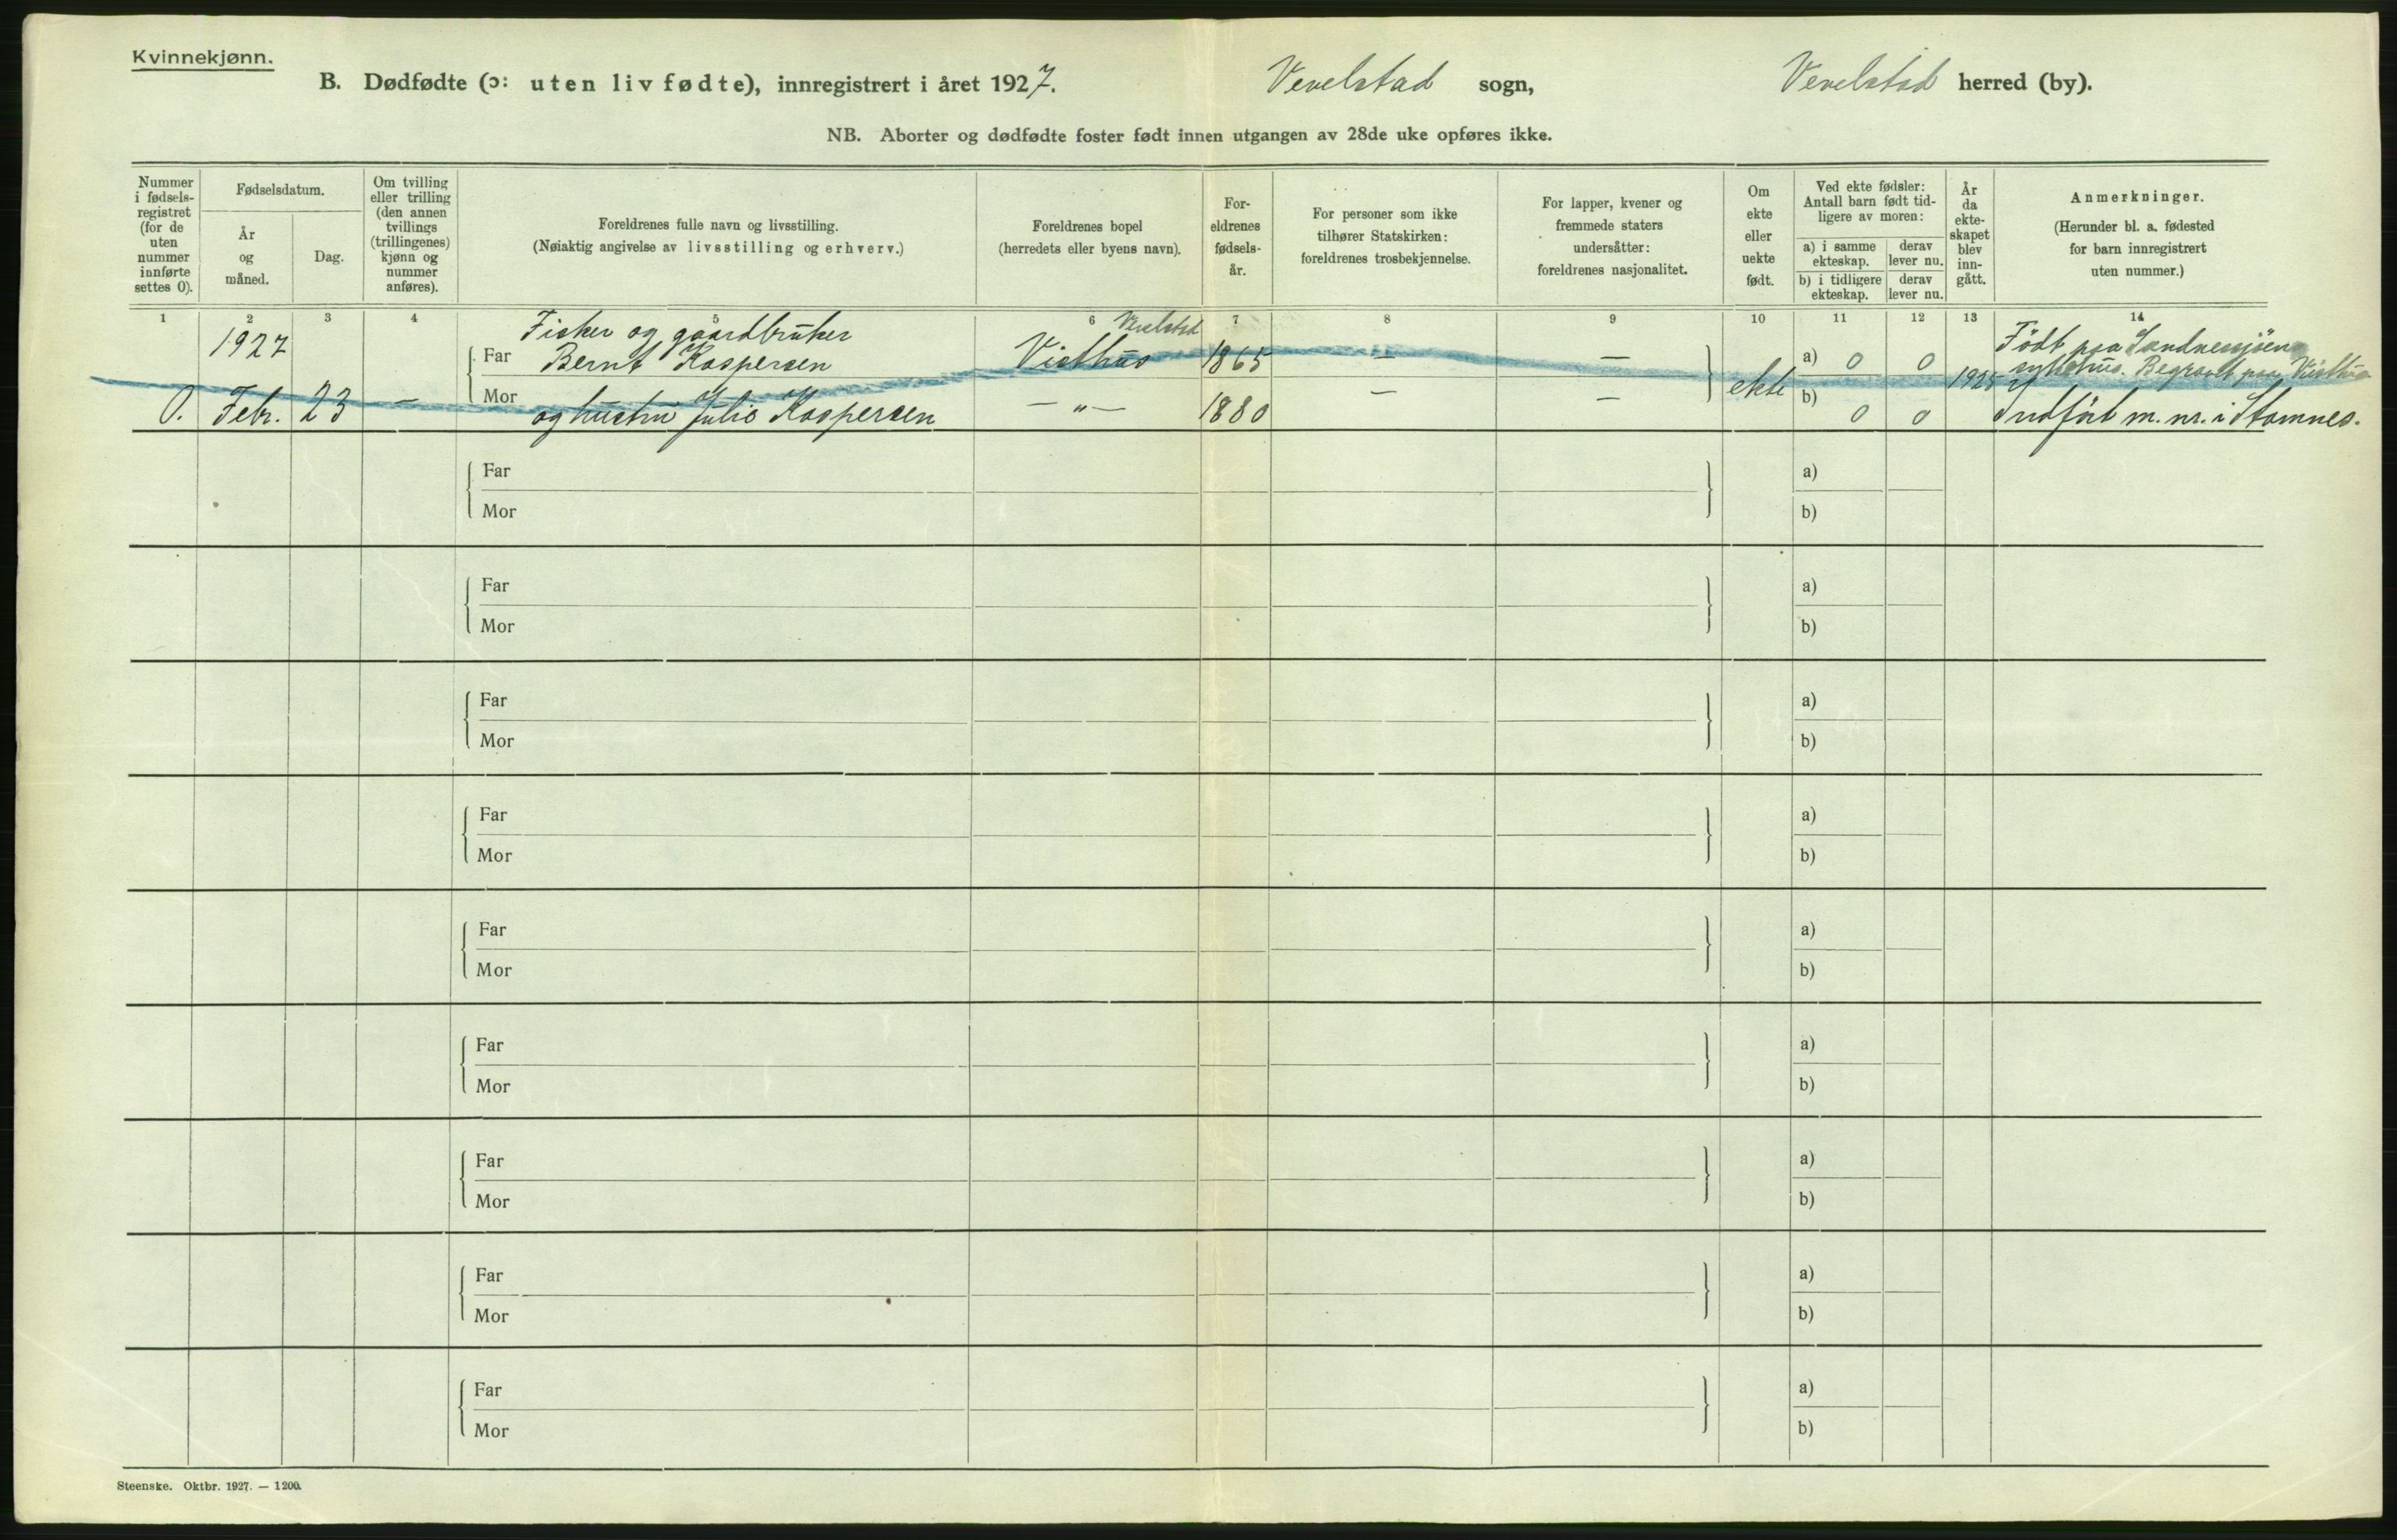 Kvinnekjønn.
B. Dødfødte (ɔ: uten liv fødte), innregistrert i året 1927. Vevelstad sogn, Vevelstad herred (by).
NB. Aborter og dødfødte foster født innen utgangen av 28de uke opføres ikke.
Nummer i fødsels-registret (for de uten nummer innførte settes 0).
Fødselsdatum.
År og måned.
Dag.
Om tvilling eller trilling (den annen tvillings (trillingenes) kjønn og nummer anføres).
Foreldrenes fulle navn og livsstilling.
(Nøiaktig angivelse av livsstilling og erhverv.)
Foreldrenes bopel
(herredets eller byens navn).
For-eldrenes fødsels-år.
For personer som ikke
tilhører Statskirken:
foreldrenes trosbekjennelse.
For lapper, kvener og
fremmede staters
undersåtter:
foreldrenes nasjonalitet.
Om ekte eller uekte født.
Ved ekte fødsler:
Antall barn født tid-
ligere av moren:
a) i samme ekteskap.
derav lever nu.
b) i tidligere ekteskap.
derav lever nu.
År da ekte-skapet blev inn-gått.
Anmerkninger.
(Herunder bl. a. fødested
for barn innregistrert
uten nummer.)
1 2 3 4 5 6 7 8 9 10 11 12 13 14
Fisker og gaardbruker Vevelstad Født paa Sandnessjøen
1927 Far Bernt Kaspersen Visthus 1865 — — a) 0 0 sykehus. Begravet paa Visthus
ekte 1925
0. Febr. 23 — Mor og hustru Julie Kaspersen — „ — 1880 — — b) 0 0 Indført m. nr. i Stamnes.
Far a)
Mor b)
Far a)
Mor b)
Far a)
Mor b)
Far a)
Mor b)
Far a)
Mor b)
Far a)
Mor b)
Far a)
Mor b)
Far a)
Mor b)
Far a)
Mor b)
Steenske. Oktbr. 1927. — 1200.